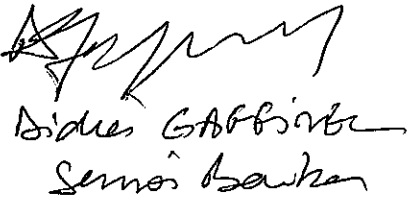 Didier GAFFINEL
Senior Banker